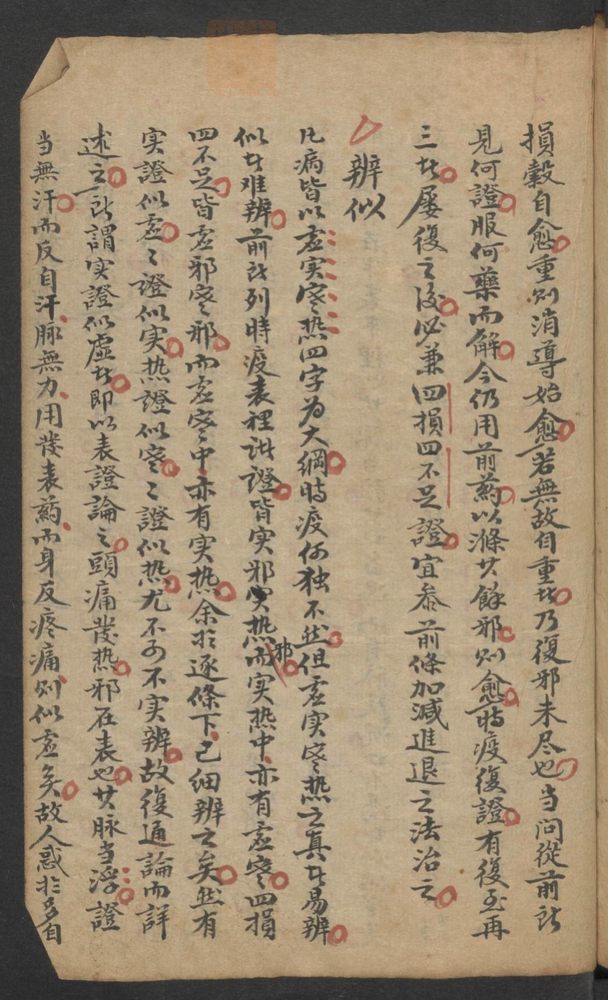 損穀自愈重则消導始愈若無故自重者乃復邪未尽也当問從前所
見何證服何藥而解今仍用前藥以滌其餘邪则愈時疫復證有復至再
三者屡復之後必兼四損四不足證宜参前條加減進退之法治之
辨似
凡病皆以虚実寒热四字为大綱時疫何独不然但虚実寒热之真者易辨
似者难辨前所列時疫表裡諸證皆実邪热邪而実热中亦有虚寒四損
四不足皆虚邪寒邪而虚寒中亦有実热余於逐條下已细辨之矣然有
実證似虚虚證似実热證似寒寒證似热尤不可不実辨故復通論而詳
述之所謂実證似虚者即以表證論之頭痛發热邪在表也其脉当浮證
当無汗而反自汗脉無力用發表藥而身反疼痛则似虚矣故人惑於多自